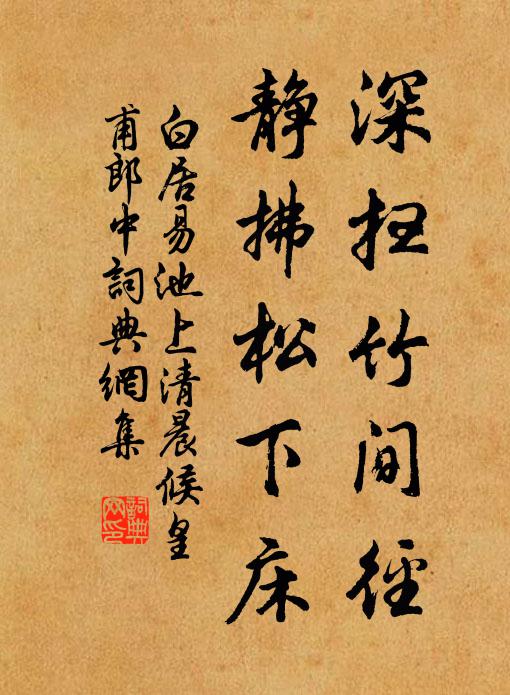 深扫竹间径
静拂松下床
白居易池上清晨候皇
甫郎中詞典網集
詞典
网印